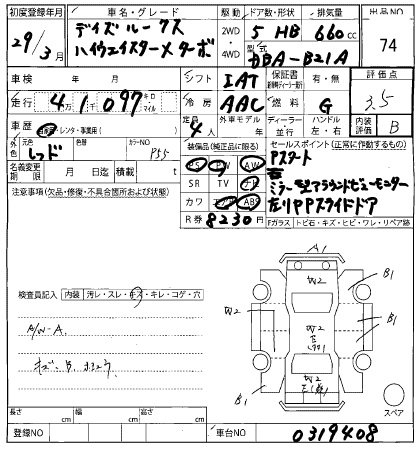 初度登録年月 車名・グレード 駆動 ドア数・形状 排気量 出品NO
29/3月 デイズルークス 2WD 5 HB 660cc 74
ハイウェイスターメターボ 4WD 型式 DBA-B21A
車検 年 月 シフト IAT 保証書 有・無 評価点
走行 4万1097 キロ マイル 冷房 AAC 燃料 G 3.5
車歴 自家用・レンタ・事業用 定員 4人 外車モデル ディーラー・並行 ハンドル 左・右 内装 B
外色 元色 レッド 色替 カラーNO 装備品(純正品に限る) セールスポイント(正常に作動するもの)
PS PW AW Pスタート
名義変更期限 月 日 迄 月 SR TV ナビ
注意事項(欠品・修復・不具合箇所および状態) カワ エアB ABS 左リPPスライドドア
R券 8230円 Fガラス トビ石・キズ・ヒビ・ワレ・リペア跡
検査員記入 内装 汚レ・スレ・キズ・キレ・コゲ・穴
A/W-A.
キズ・B.
A1
W2
B1
W2
B1
W2
B1
スペア
長さ cm 幅 cm 高さ cm
登録NO 車台NO 0319408